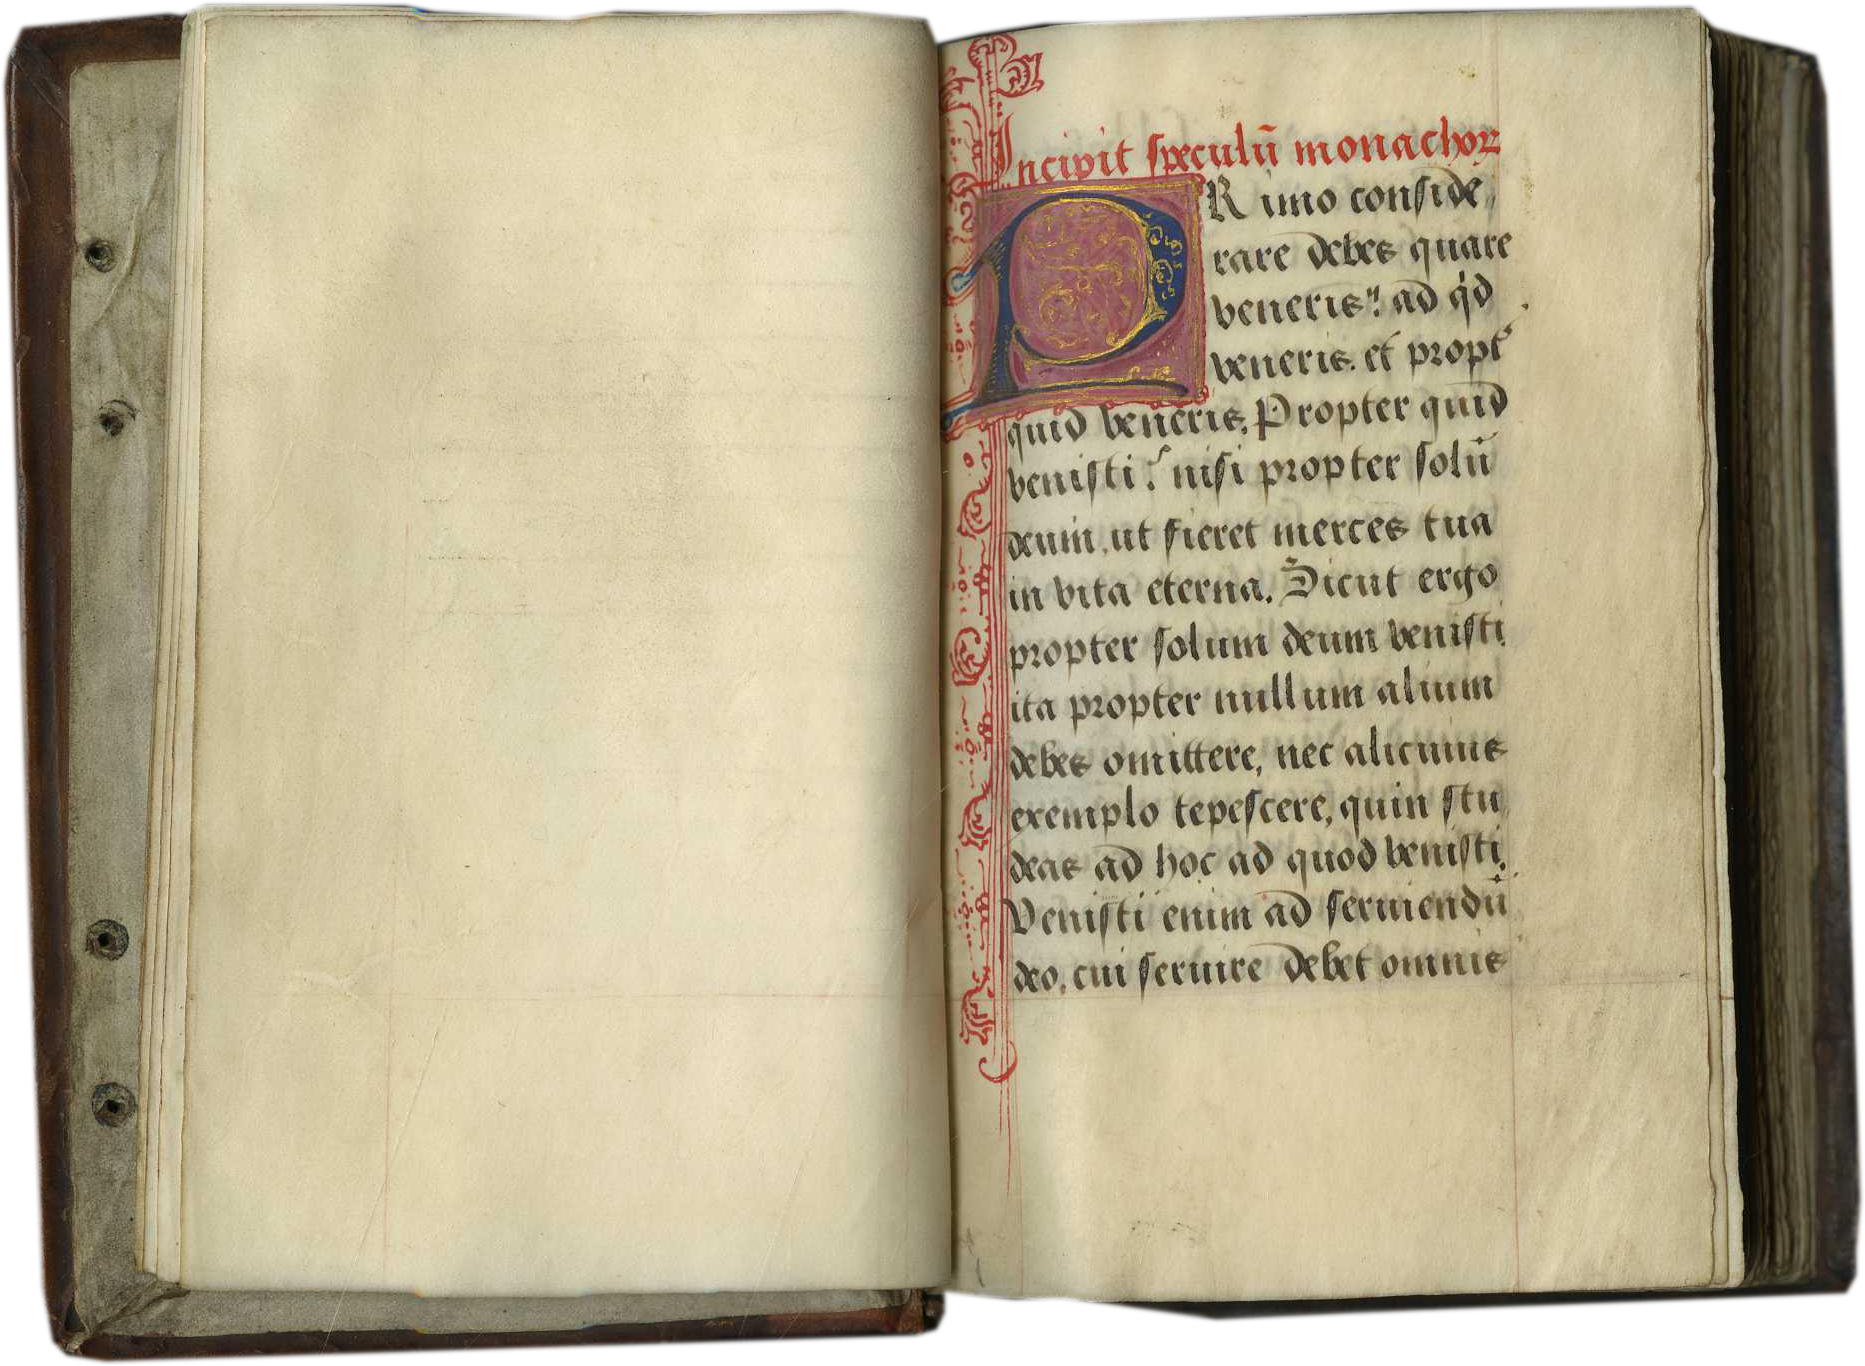 Incipit speculū monachoꝝ
PRimo conside
rare debes quare
veneris? ad qͥd
veneris. et propt᷒
quid veneris. Propter quid
venisti? nisi propter solū
deum, ut fieret merces tua
in vita eterna. Sicut ergo
propter solum deum venisti
ita propter nullum alium
debes omittere, nec alicuius
exemplo tepescere, quin stu
deas ad hoc ad quod venisti.
Venisti enim ad seruiendū
deo, cui seruire debet omnis